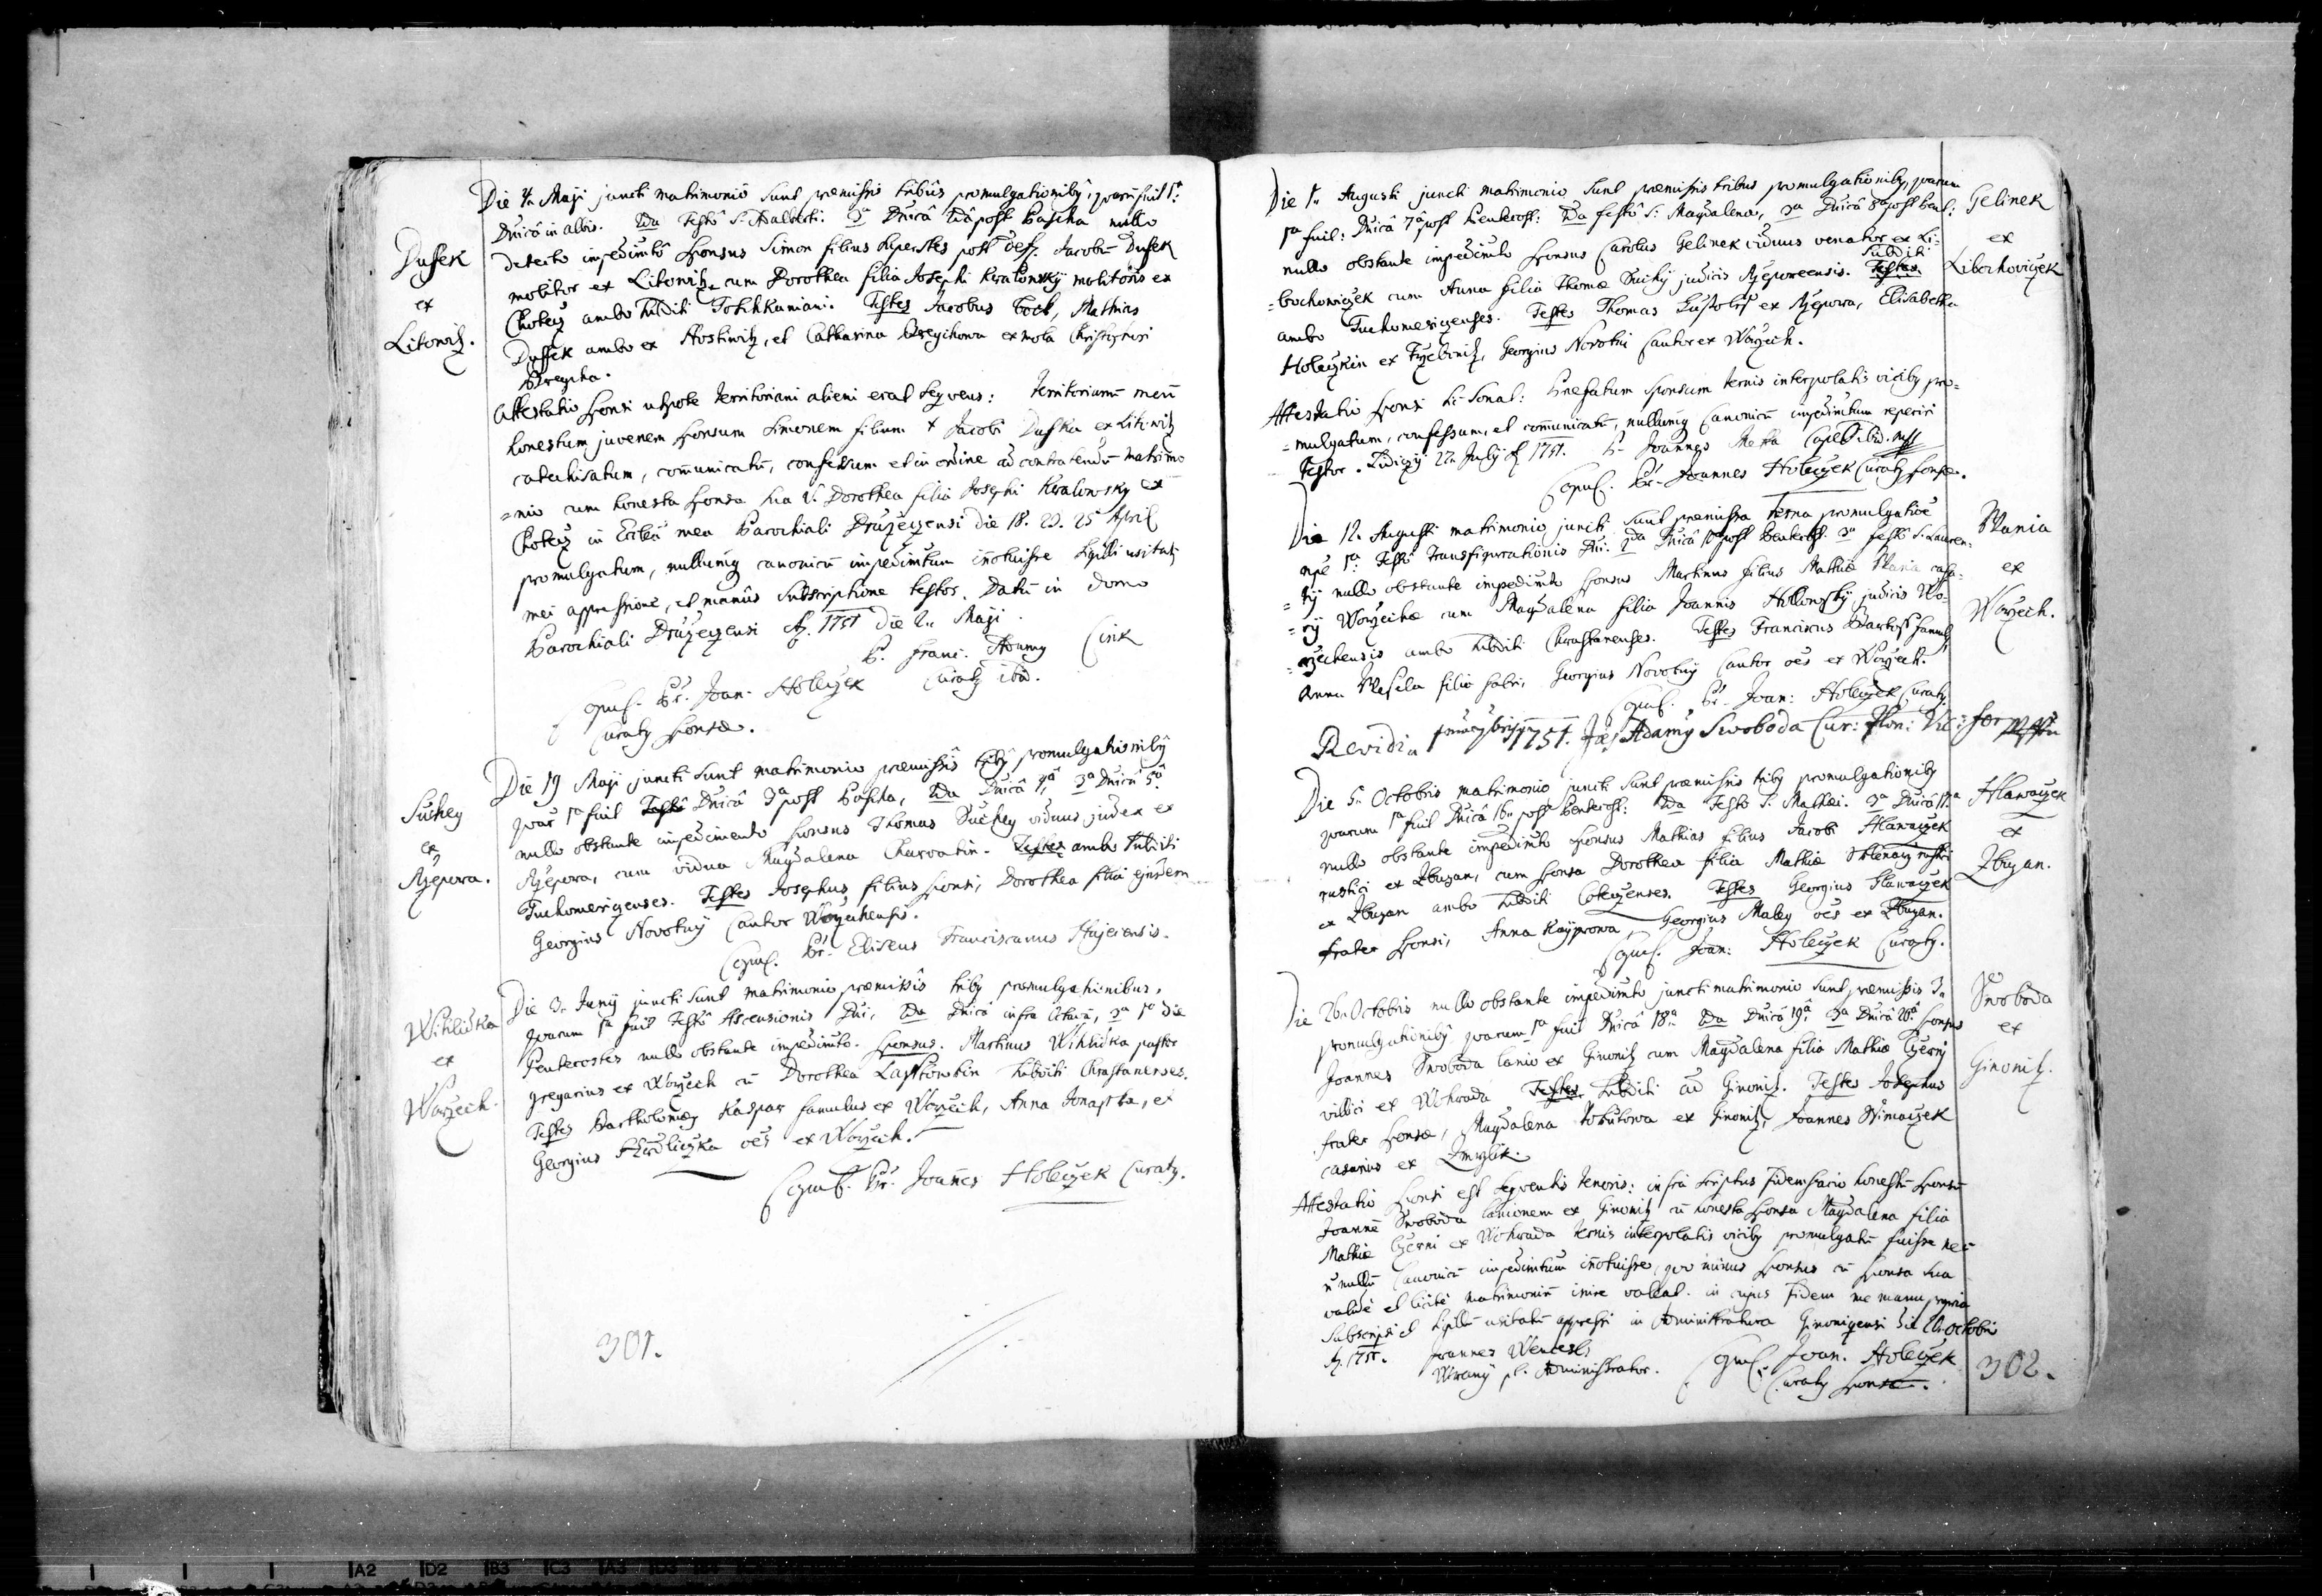 Dussek
ex
Litowitz.
Die 4. Maji juncti matrimonio sunt praemissis tribus promulgationibg, quarū fuit 1a
Dnicâ in albis. IIda Festô S. Adalberti. 3a Dnicâ IIdâ post Pascha nullo
detecto impedimto Sponsus Simon filius superstes post def. Jacobū Dussek
molitor ex Litowitz cum Dorothea filia Josephi Kralowsky molitoris ex
Choteẏ ambo subditi Testes Jacobus Mathias
Dussek ambo ex Hostiwitz, et Catharina ex mola Christophori

Attestatio Sponsi utpote territoriani alieni erat seqvens: Territorianū meū
honestum juvenem Sponsum Simonem filium + Jacobi Dusska ex Litowitz
catechisatum, com̄unicatū, confessum et in ordine ad contrahendū matrimo
=nio cum honesta Sponsa sua V. Dorothea filia Josephi Kralowsky ex
in Ecclia mea Parochiali Družecensi die 18. 23. 25 April
promulgatum, nullumq canonicū impedimtum in̄otuisse Sigilli usitati
mei appressione, et manûs subscriptione testor. Datū in domo
Parochiali Družecensi Aō. 1751 die 2. Maji.
P. Franc. Adamg Cink
Curatg ibid.
Copul. Pr. Joan. Holeczek
Curatg Sponsae.
Suchey
ex
Rzepora.
Die 19 Maji juncti sunt matrimonio praemissis tribg promulgationibg
quar 1a fuit Festô Dnicâ 3a post Pascha, IIda Dnicâ 4â, 3a Dnicâ 5â
nullo obstante impedimento Sponsus Thomas Suchey viduus judex ex
Rzepora, cum vidua Magdalena Charvatin. Testes ambo subditi
Tuchomericenses. Testes Josephus filius Sponsi, Dorothea filia ejusdem
Georgius Novotny Cantor Worzechensis.
Copul. Pr. Eliseus Franciscanus Hajecensis.
Wihlidka
ex
Worzech.
Die 3. Junij juncti sunt matrimonio praemissis tribg promulgationibus,
quarum 1a fuit Festô Ascensionis Dni, IIda Dnicâ infra Octavā, 3a 1a die
Pentecostes nullo obstante impedimto. Sponsus. Martinus Wihlidka pastor
gregarius ex Worzech cū Dorothea Lastowkin subditi Chrastanenses.
Testes Bartholomaeg Kaspar famulus ex Worzech, Anna et
Georgius Hrdliczka oēs ex Worzech.
Copul. Pr. Joannes Holeczek Curatg.
301.
Die 1. Augusti juncti matrimonio sunt praemissis tribus promulgationibg, quarum
1a fuit: Dnicâ 7â post Pentecost: IIda festô S: Magdalena, 3a Dnicâ 8â post Pent:
nullo obstante impedimto Sponsus Carolus Gelinek viduus venator ex Li=
=bochowiczek cum Anna filia Thomae Suchÿ judicis Rzeporeensis. Testes Subditi
ambo Tuchomericenses. Testes Thomas ex Rzepora, Elisabetha
Holeczkin ex Trzebonitz, Georgius Novotni Cantor ex Worzech.
Attestatio Sponsi sic sonat: Praefatum Sponsum ternis interpolatis vicibg pro=
=mulgatum, confessum, et com̄unicatū, nullumq Canonicū impedimtum reperiri
testor. 27. Julÿ Aō 1751. P. Joannes Capel. ibid. mpp
Copul. Pr. Joannes Holeczek Curatg Sponsae.
Gelinek
ex
Libochoviczek
Die 12. Augusti matrimonio juncti sunt praemissa terna promulgatiōe
npe 1a: Festô Transfigurationis Dni. 2da Dnicâ 10â post Pentecost. 3a festô S. Lauren=
=tij nullo obstante impedimto Sponsus Martinus filius Mathiae casa=
=rij Worzechae cum Magdalena filia Joannis judicis Wo=
=rzechensis ambo subditi Chrastanenses. Testes Franciscus famulg
Anna filia fabri, Georgius Novotnÿ Cantor oēs ex Worzech.
Copul. Pr. Joan: Holeczek Curatg
ex
Worzech.
Revidi 1751. Adamg Swoboda Cur: Vic: for mppu
Die 5. Octobris matrimonio juncti sunt praemissis tribg promulgationibg
quarum 1a fuit Dnicâ 16. post Pentecost: IIda Festô S. Mathaei. 3a Dnicâ 17a
nullo obstante impedimto Sponsus Mathias filius Jacobi Hlawaczek
rustici ex Zbuzan, cum Sponsa Dorothea filia Mathiae rustici
ex Zbuzan ambo subditi Testes Georgius Hlawaczek
frater Sponsi, Anna Kayprowa, Georgius Maley oēs ex Zbuzan.
Copul. Joan: Holeczek Curatg.
Hlawaczek
ex
Zbuzan.
Die 26. Octobris nullo obstante impedimto juncti matrimonio sunt praemissis 3.
promulgationibg quarum 1a fuit Dnicâ 18.a IIda Dnicâ 19â, 3a Dnicâ 20â Sponsus
Joannes Swoboda lanio ex Ginonitz cum Magdalena filia Mathiae Czerni
villici ex Wohrada Testes Subditi ad Ginonitz. Testes Josephus
frater Sponsae, Magdalena ex Ginonitz, Joannes
casarius ex Zmrzlik.
Attestatio Sponsi est seqventis tenoris: infra scriptus fidem facio honestū Sponsū
Joannē Swoboda lanionem ex Ginonitz cū honesta Sponsa Magdalena filia
Mathiae Czerni ex Wohrada ternis interpolatis vicibg promulgatū fuisse nec
nullū Canonicū impedimtum in̄otuisse, quo minus Sponsus cū Sponsa sua
validè et licitè matrimoniū inire valeat. in cujus fidem me manu propria
Subscripsi et Sigillū usitatū appressi in Administratura Ginonicensi die 20. Octobris
Aō. 1751. Joannes Wencesl:
Wrany p.t. Administrator. Copul. Joan. Holeczek
Curatg Sponsae.
Swoboda
ex
Ginonitz.
302.